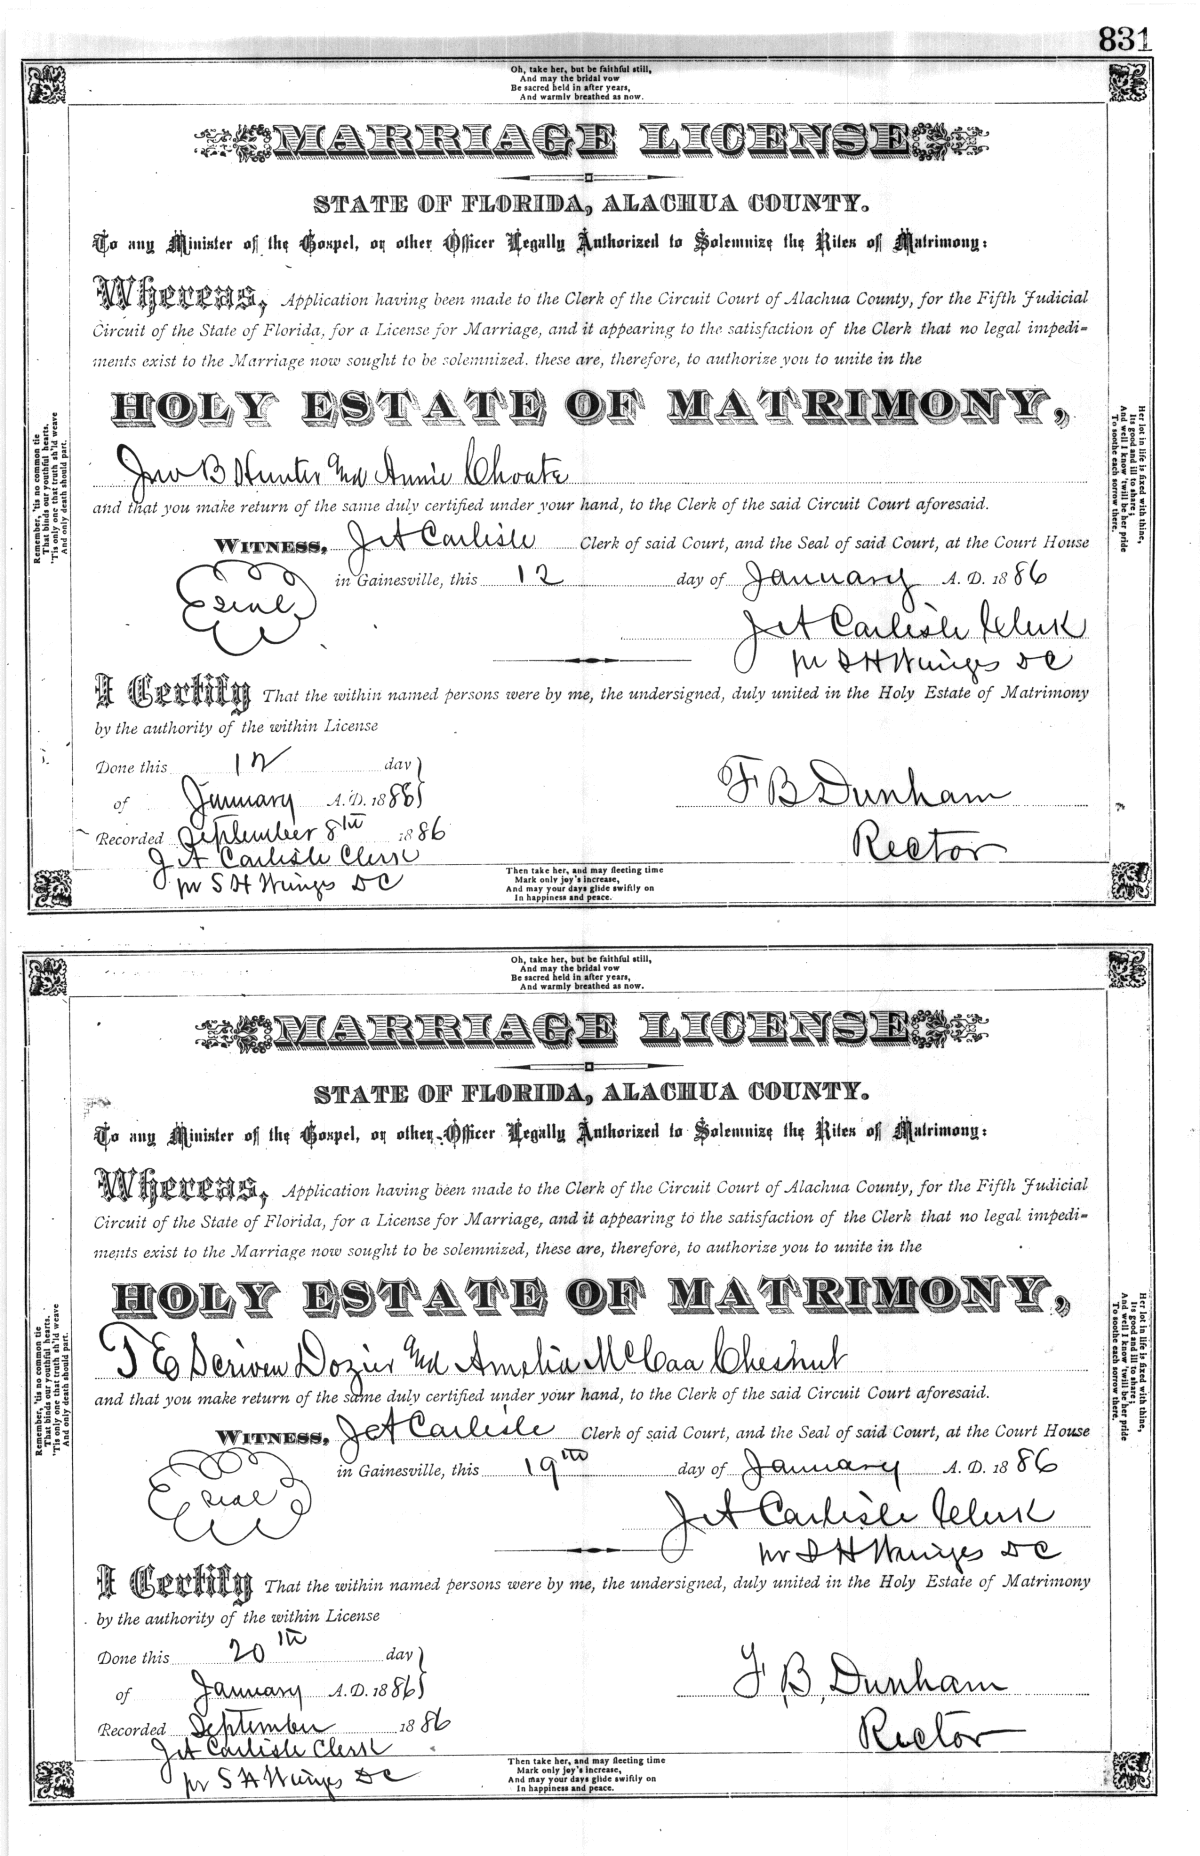 831
Oh, take her, but be faithful still,
And may the bridal vow
Be sacred held in after years,
And warmly breathed as now.
MARRIAGE LICENSE
STATE OF FLORIDA, ALACHUA COUNTY.
To any Minister of the Gospel, or other Officer Legally Authorized to Solemnize the Rites of Matrimony:
Whereas, Application having been made to the Clerk of the Circuit Court of Alachua County, for the Fifth Judicial
Circuit of the State of Florida, for a License for Marriage, and it appearing to the satisfaction of the Clerk that no legal impedi-
ments exist to the Marriage now sought to be solemnized. these are, therefore, to authorize you to unite in the
HOLY ESTATE OF MATRIMONY,
Jno B Hunter and Annie Choate
and that you make return of the same duly certified under your hand, to the Clerk of the said Circuit Court aforesaid.
WITNESS, J A Carlisle Clerk of said Court, and the Seal of said Court, at the Court House
in Gainesville, this 12 day of January A. D. 1886
Seal
J A Carlisle Clerk
pr S H Wienges DC
I Certify That the within named persons were by me, the undersigned, duly united in the Holy Estate of Matrimony
by the authority of the within License
Done this 12 day
of January A.D. 1886
F B Dunham
Rector
Recorded September 8th 1886
J A Carlisle Clerk
pr S H Wienges DC
Then take her, and may fleeting time
Mark only joy's increase,
And may your days glide swiftly on
In happiness and peace.
Remember, 'tis no common tie
That binds our youthful hearts,
'Tis only one that truth sh'ld weave
And only death should part.
Her lot in life is fixed with thine,
Its good and ill to share;
And well I know 'twill be her pride
To soothe each sorrow there.
Oh, take her, but be faithful still,
And may the bridal vow
Be sacred held in after years,
And warmly breathed as now.
MARRIAGE LICENSE
STATE OF FLORIDA, ALACHUA COUNTY.
To any Minister of the Gospel, or other Officer Legally Authorized to Solemnize the Rites of Matrimony:
Whereas, Application having been made to the Clerk of the Circuit Court of Alachua County, for the Fifth Judicial
Circuit of the State of Florida, for a License for Marriage, and it appearing to the satisfaction of the Clerk that no legal impedi-
ments exist to the Marriage now sought to be solemnized, these are, therefore, to authorize you to unite in the
HOLY ESTATE OF MATRIMONY,
T E Scriven Dozier and Amelia McCaa Chesnut
and that you make return of the same duly certified under your hand, to the Clerk of the said Circuit Court aforesaid.
WITNESS, J A Carlisle Clerk of said Court, and the Seal of said Court, at the Court House
in Gainesville, this 19th day of January A. D. 1886
Seal
J A Carlisle Clerk
pr S H Wienges DC
I Certify That the within named persons were by me, the undersigned, duly united in the Holy Estate of Matrimony
by the authority of the within License
Done this 20th day
of January A.D. 1886
F. B. Dunham
Rector
Recorded September 1886
J A Carlisle Clerk
pr S H Wienges DC
Then take her, and may fleeting time
Mark only joy's increase,
And may your days glide swiftly on
In happiness and peace.
Remember, 'tis no common tie
That binds our youthful hearts,
'Tis only one that truth sh'ld weave
And only death should part.
Her lot in life is fixed with thine,
Its good and ill to share;
And well I know 'twill be her pride
To soothe each sorrow there.